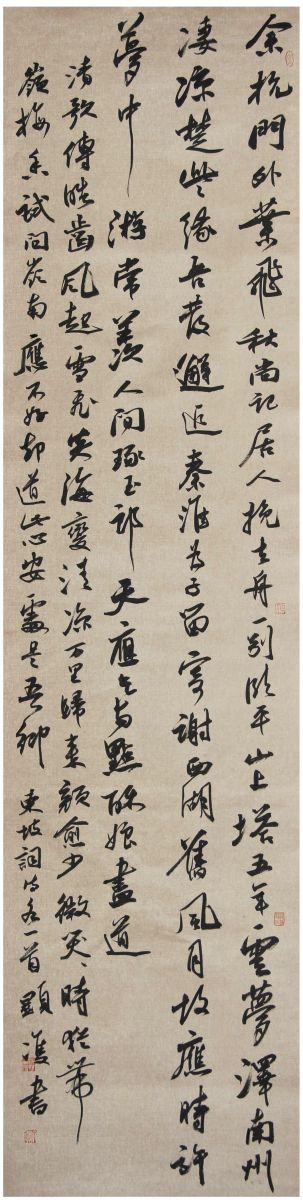 余杭門外葉飛秋尚記居人挽去舟一別臨平山上塔五年雲夢澤南州
凄凉楚些緣吾發邂逅秦淮為子留寄謝西湖舊風月故應時許
夢中游 常羨人間琢玉郎天應乞與點酥娘盡道
清歌傳皓齒風起雪飛炎海變清凉万里歸來顏愈少微笑、時猶帶
嶺梅香試問嶺南應不好却道此心安處是吾鄉 東坡詞詩各一首 顯 書